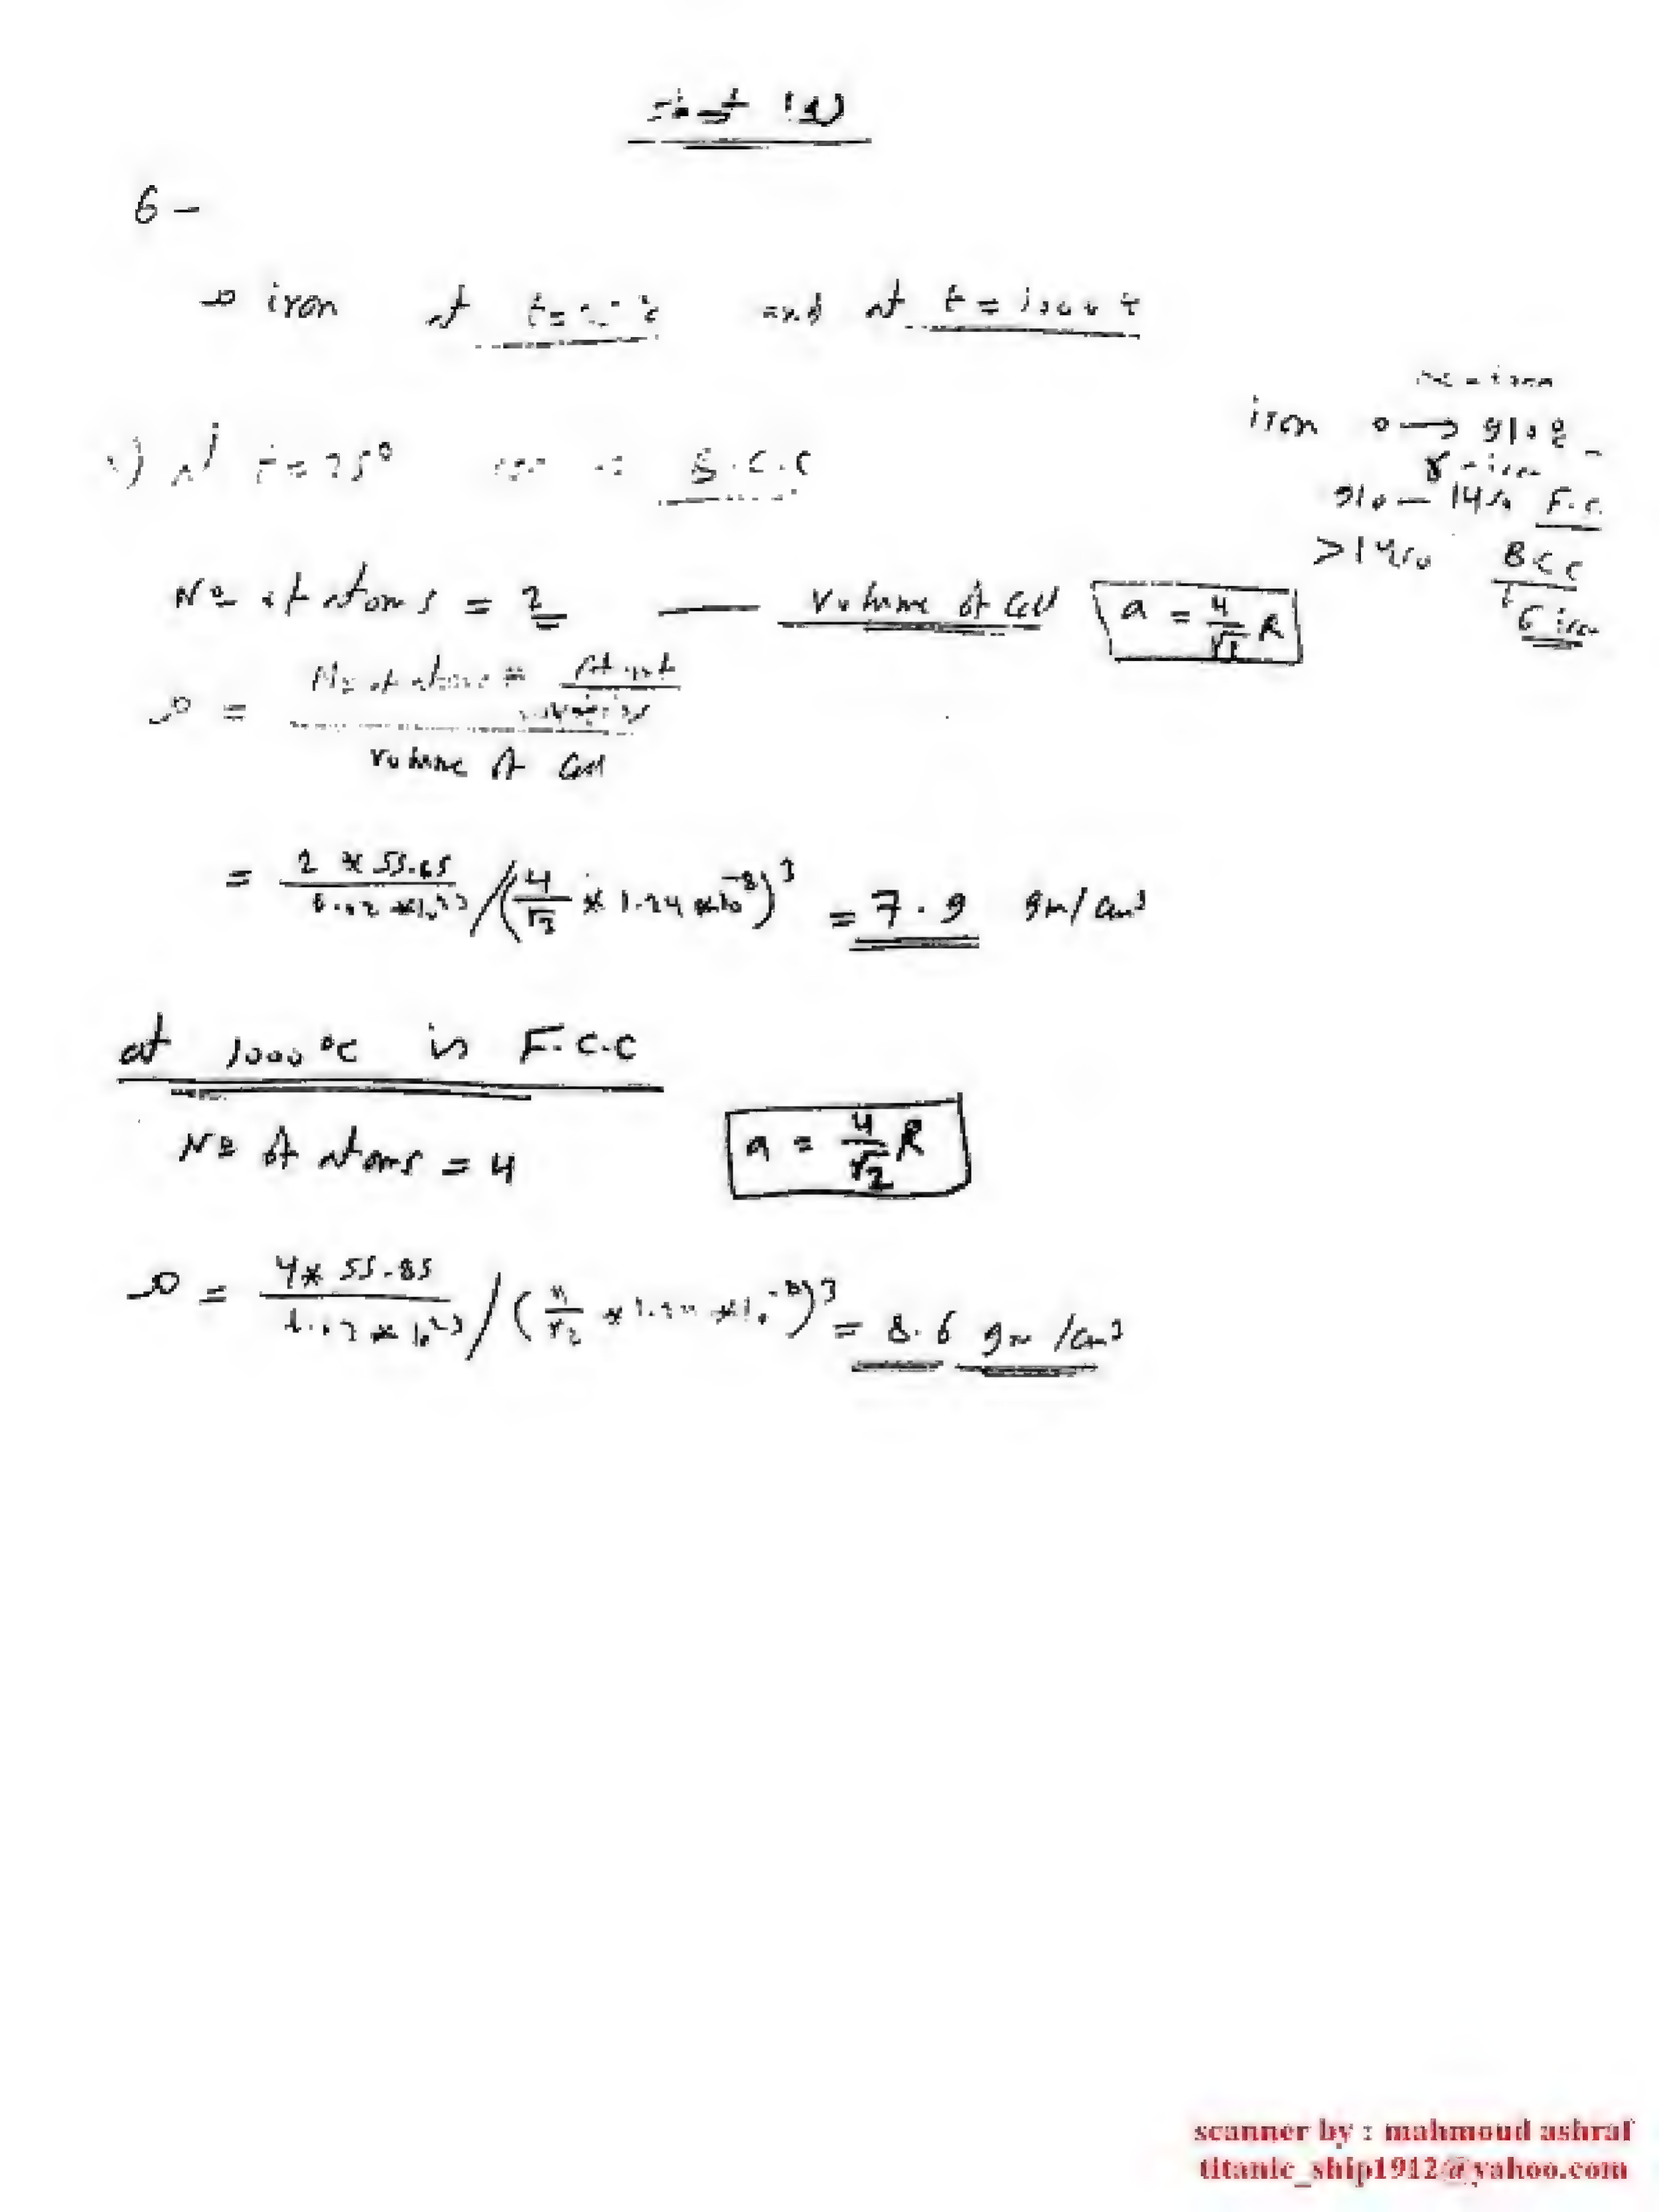 6 -
ρ iron at and at t = 1000 °C
iron 0 → 910 °C
γ - iron
910 — 1400 F.C.
> 1400 BCC
iron
at t = 25° B.C.C
Nº of atoms = 2 — volume of cell a = 4/√3 R
ρ = Nº of atoms * At wt / volume of cell
= 2 * 55.85 / 6.02 * 10²³ / (4/√3 * 1.24 * 10⁻⁸)³ = 7.9 gm/cm³
at 1000 °C is F.C.C
Nº of atoms = 4 a = 4/√2 R
ρ = 4 * 55.85 / 6.02 * 10²³ / (4/√2 * 1.24 * 10⁻⁸)³ = 8.6 gm/cm³
scanner by : mahmoud ashraf
titanic_ship1912@yahoo.com